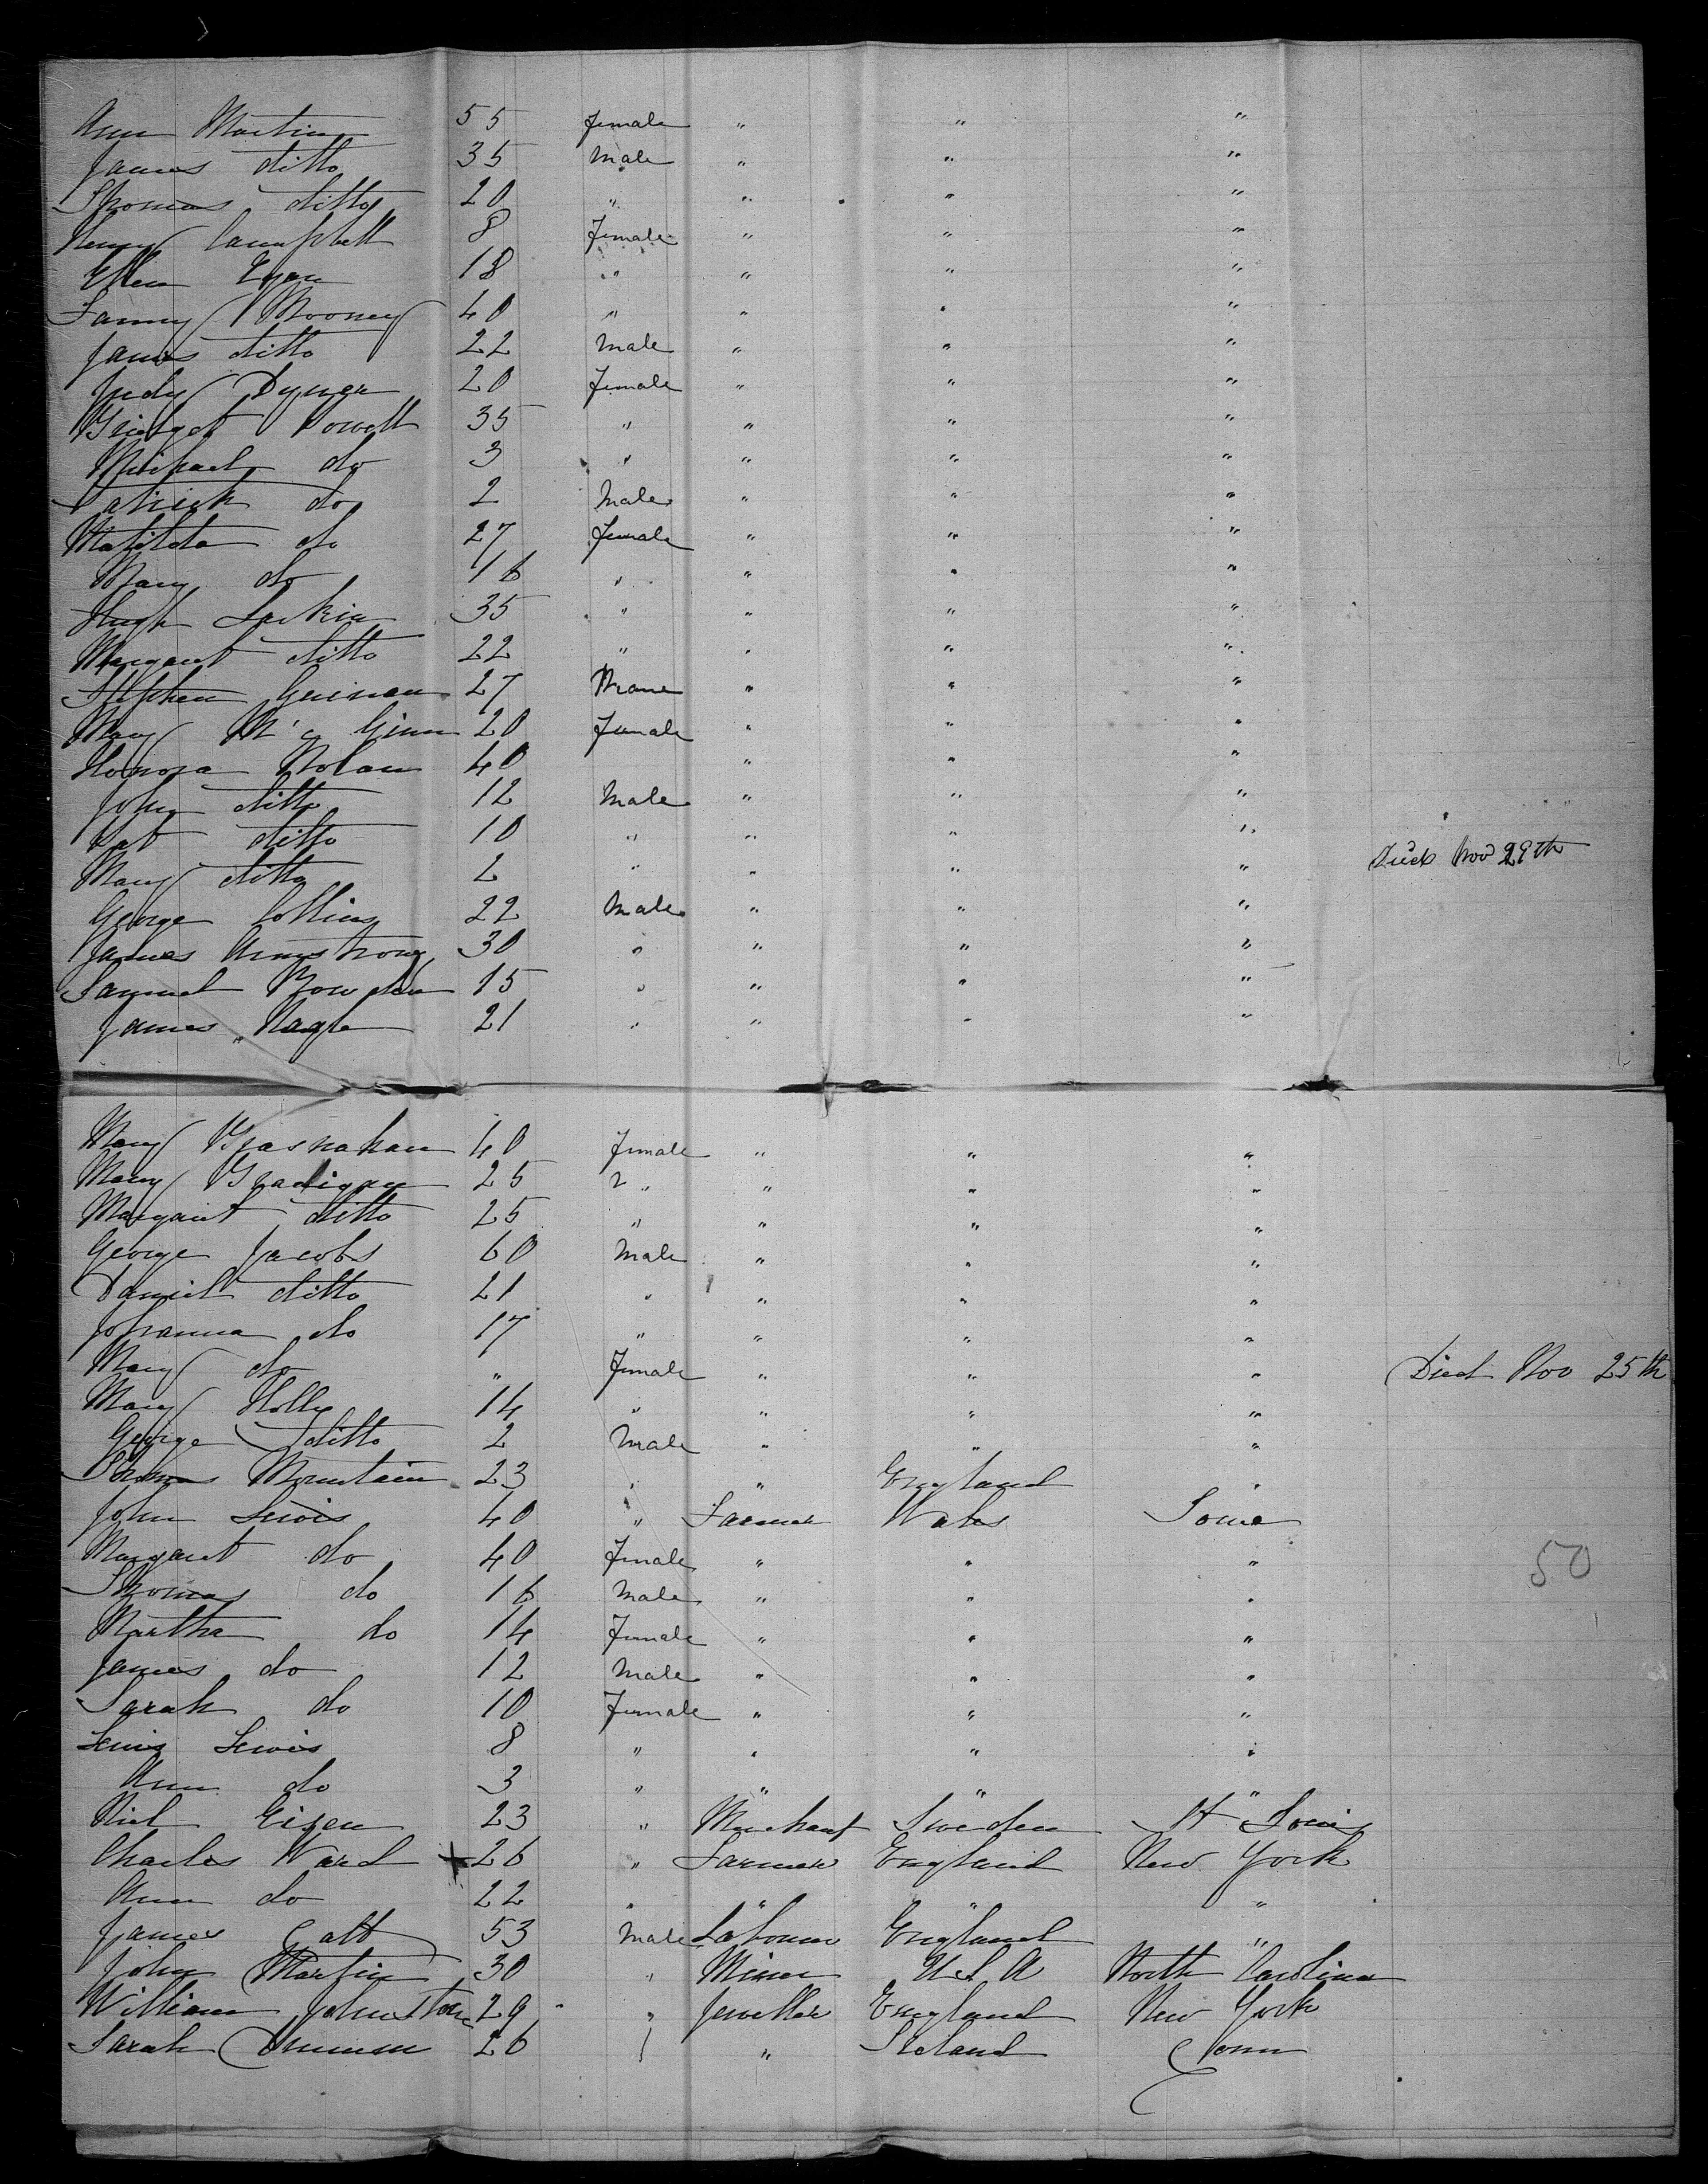 Ann Martin 55 female " " "
James ditto 35 Male " " "
Thomas ditto 20 " " " "
Henry Campbell 8 Female " " "
Ellen Egan 18 " " " "
Fanny Mooney 40 " " " "
James ditto 22 Male " " "
Judy 20 Female " " "
Bridget Powell 35 " " " "
Michael do 3 " " " "
Patrick do 2 Male " " "
Matilda do 27 Female " " "
Mary do 16 " " " "
Hugh Larkin 35 " " " "
Margaret ditto 22 " " " "
Stephen Guinan 27 " " "
Mary Mc Ginn 20 Female " " "
Honora Nolan 40 " " "
John ditto 12 Male " " "
Pat ditto 10 " " " "
Mary ditto 2 " " " " Died Nov 29th
George Collins 22 Male " " "
James Armstrong 30 " " " "
Samuel Bowden 15 " " " "
James Nagle 21 " " " "
Mary Brasnahan 40 Female " " "
Mary Bradigan 25 " " " "
Margaret ditto 25 " " " "
George Jacobs 60 Male " " "
Daniel ditto 21 " " " "
Johanna do 17 " " " "
Mary do " Female " " " Died Nov 25th
Mary Holly 14 " " " "
George ditto 2 Male " " "
Thomas Mountain 23 " " England "
John Lewis 40 " Farmer Wales Iowa
Margaret do 40 Female " " "
Thomas do 16 Male " " " 50
Martha do 14 Female " " "
James do 12 Male " " "
Sarah do 10 Female " " "
Lewis Lewis 8 " " " "
Ann do 3 " " " "
Eisen 23 " Merchant Sweden St Louis
Charles Ward + 26 " Farmer England New York
Ann do 22 " " " "
James Catt 53 Male Labourer England "
John Martin 30 " Miner U S A North Carolina
William Johnstone 29 " Jeweller England New York
Sarah 26 " Ireland Conn